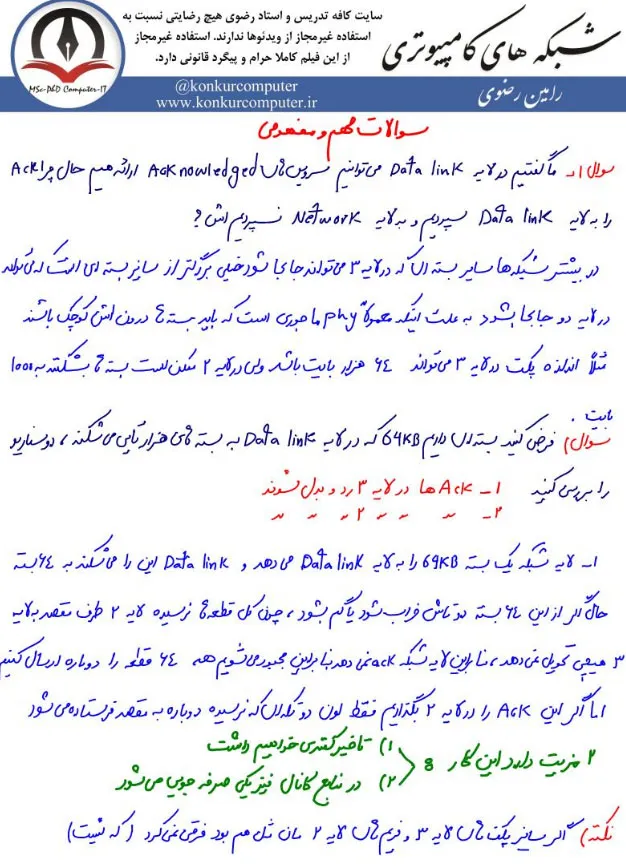 سایت کافه تدریس و استاد رضوی هیچ رضایتی نسبت به
استفاده غیرمجاز از ویدئوها ندارند. استفاده غیرمجاز
از این فیلم کاملا حرام و پیگرد قانونی دارد.
شبکه های کامپیوتری
MSc-PhD Computer-IT
@konkurcomputer
www.konkurcomputer.ir
رامین رضوی
سوالات مهم و مفهومی
سوال ۱ـ ما گفتیم در لایه Data link می توانیم سرویس های Acknowledged ارائه دهیم حال چرا Ack
را به لایه Data link سپردیم و به لایه Network نسپردیم اش ؟
در بیشتر شبکه ها سایز بسته ای که در لایه ۳ می تواند جابجا شود خیلی بزرگتر از سایز بسته ای است که می تواند
در لایه دو جابجا بشود به علت اینکه معمولاً phy ما جوری است که باید بسته ها درون اش کوچک باشند
مثلاً اندازه پکت در لایه ۳ می تواند ۶۴ هزار بایت باشد ولی در لایه ۲ ممکن است بسته ها بشکنند به ۱۰۰۰
بایت .
سوال) فرض کنید بسته ای داریم 64KB که در لایه Data link به بسته های هزار تایی می شکند ، دو سناریو
را بررسی کنید ۱ـ Ack ها در لایه ۳ رد و بدل شوند
۲ـ " " " ۲ " " "
۱ـ لایه شبکه یک بسته 64KB را به لایه Data link می دهد و Data link این را می شکند به ۶۴ بسته
حال اگر از این ۶۴ بسته دو تاش خراب شود یا گم بشود ، چون کل قطعه ها نرسیده لایه ۲ طرف مقصد به لایه
۳ هیچی تحویل نمی دهد ، بنابراین لایه شبکه ack نمی دهد بنابراین مجبور می شویم همه ۶۴ قطعه را دوباره ارسال کنیم
اما اگر این Ack را در لایه ۲ بگذاریم فقط اون دو تکه ای که نرسیده دوباره به مقصد فرستاده می شود
۲ مزیت دارد این کار : ۱) تاخیر کمتری خواهیم داشت
۲) در منابع کانال فیزیکی صرفه جویی می شود
نکته) اگر سایز پکت های لایه ۳ و فریم های لایه ۲ مان مثل هم بود فرقی نمی کرد ( که نیست)